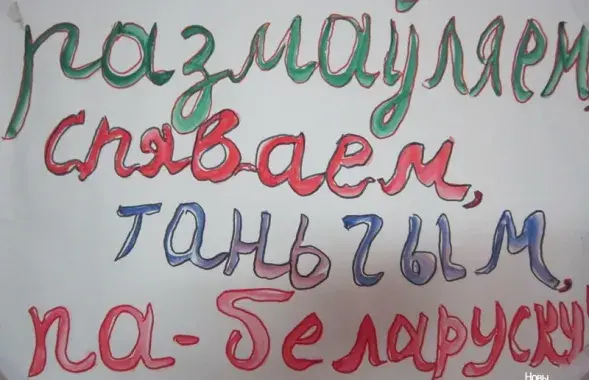 размаўляем,
спяваем,
таньчым,
па-беларуску!
Новы